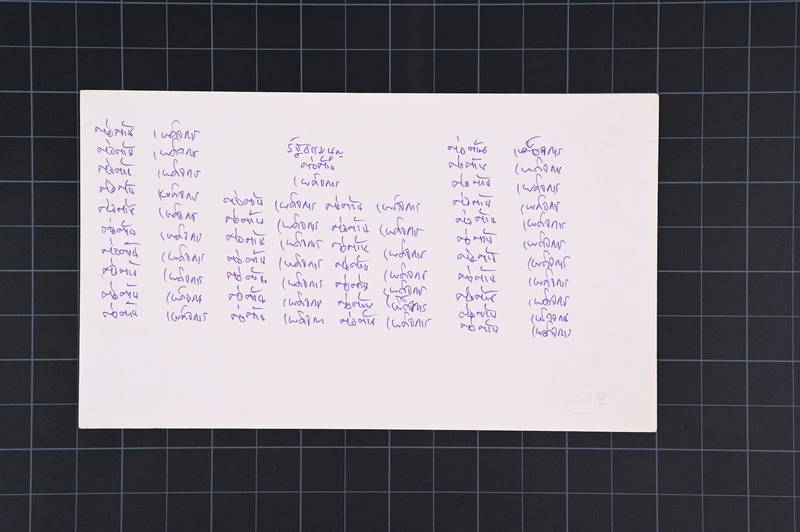 ต่อต้าน เผด็จการ
ต่อต้าน เผด็จการ
ต่อต้าน เผด็จการ
ต่อต้าน เผด็จการ
ต่อต้าน เผด็จการ
ต่อต้าน เผด็จการ
ต่อต้าน เผด็จการ
ต่อต้าน เผด็จการ
ต่อต้าน เผด็จการ
ต่อต้าน เผด็จการ
รัฐธรรมนูญ
ต่อต้าน
เผด็จการ
ต่อต้าน เผด็จการ ต่อต้าน เผด็จการ
ต่อต้าน เผด็จการ ต่อต้าน เผด็จการ
ต่อต้าน เผด็จการ ต่อต้าน เผด็จการ
ต่อต้าน เผด็จการ ต่อต้าน เผด็จการ
ต่อต้าน เผด็จการ ต่อต้าน เผด็จการ
ต่อต้าน เผด็จการ ต่อต้าน เผด็จการ
ต่อต้าน เผด็จการ ต่อต้าน เผด็จการ
ต่อต้าน เผด็จการ
ต่อต้าน เผด็จการ
ต่อต้าน เผด็จการ
ต่อต้าน เผด็จการ
ต่อต้าน เผด็จการ
ต่อต้าน เผด็จการ
ต่อต้าน เผด็จการ
ต่อต้าน เผด็จการ
ต่อต้าน เผด็จการ
ต่อต้าน เผด็จการ
ต่อต้าน เผด็จการ